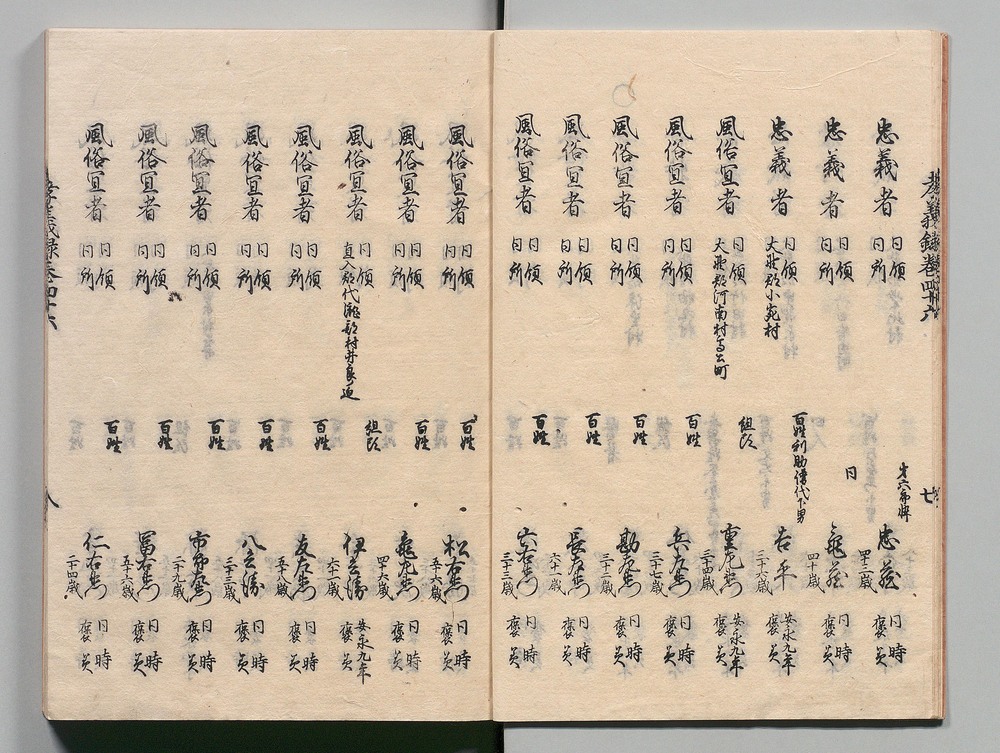 孝義録巻四十六
七
忠義者 同領同所 忠蔵 四十二歳 同時褒美
忠義者 同領同所 同 亀蔵 四十歳 同時褒美
忠義者 同領大野郡小宛村 百姓利助譜代下男 吉平 三十六歳 安永九年褒美
風俗宜者 同領大野郡河南村 組頭 重左衛門 三十四歳 安永九年褒美
風俗宜者 同領同所 百姓 兵左衛門 三十七歳 同時褒美
風俗宜者 同領同所 百姓 勘左衛門 四十三歳 同時褒美
風俗宜者 同領同所 百姓 長左衛門 六十一歳 同時褒美
風俗宜者 同領同所 百姓 六右衛門 三十三歳 同時褒美
風俗宜者 同領同所 百姓 松右衛門 五十六歳 同時褒美
風俗宜者 同領同所 百姓 亀左衛門 四十六歳 同時褒美
風俗宜者 同領直入郡代 組頭 伊三勝 六十二歳 安永九年褒美
風俗宜者 同領同所 百姓 友左衛門 五十八歳 同時褒美
風俗宜者 同領同所 百姓 八三勝 三十三歳 同時褒美
風俗宜者 同領同所 百姓 市郎左衛門 二十九歳 同時褒美
風俗宜者 同領同所 百姓 冨右衛門 五十六歳 同時褒美
風俗宜者 同領同所 百姓 仁右衛門 二十四歳 同時褒美
孝義録巻四十六
八